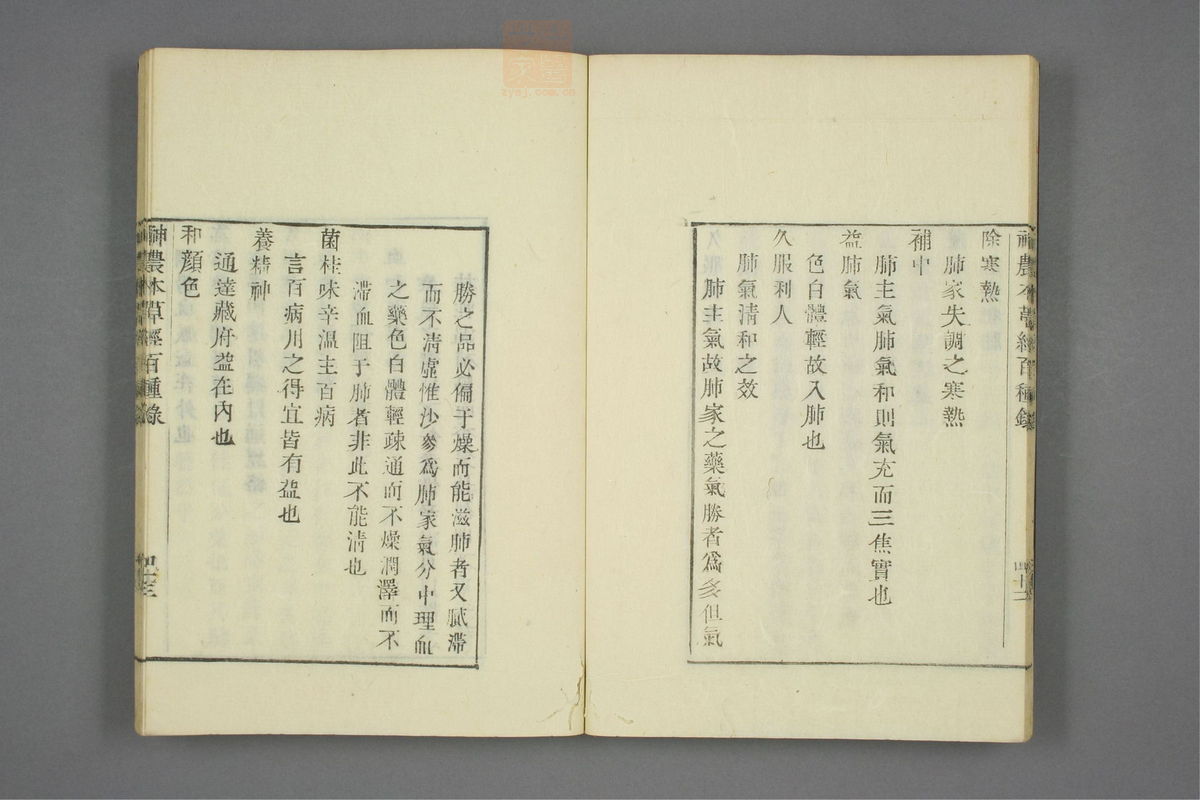 神農本草經百種錄
除寒熱
肺家失調之寒熱
補中
肺主氣肺氣和則氣充而三焦實也
益肺氣
色白體輕故入肺也
久服利人
肺氣清和之效
肺主氣故肺家之藥氣勝者爲多但氣
勝之品必偏于燥而能滋肺者又膩滯
而不清虛惟沙參爲肺家氣分中理血
之藥色白體輕疎通而不燥潤澤而不
滯血阻于肺者非此不能清也
菌桂味辛溫主百病
言百病用之得宜皆有益也
養精神
通達藏府益在內也
和顏色
神農本草經百種錄
zysj.com.cn